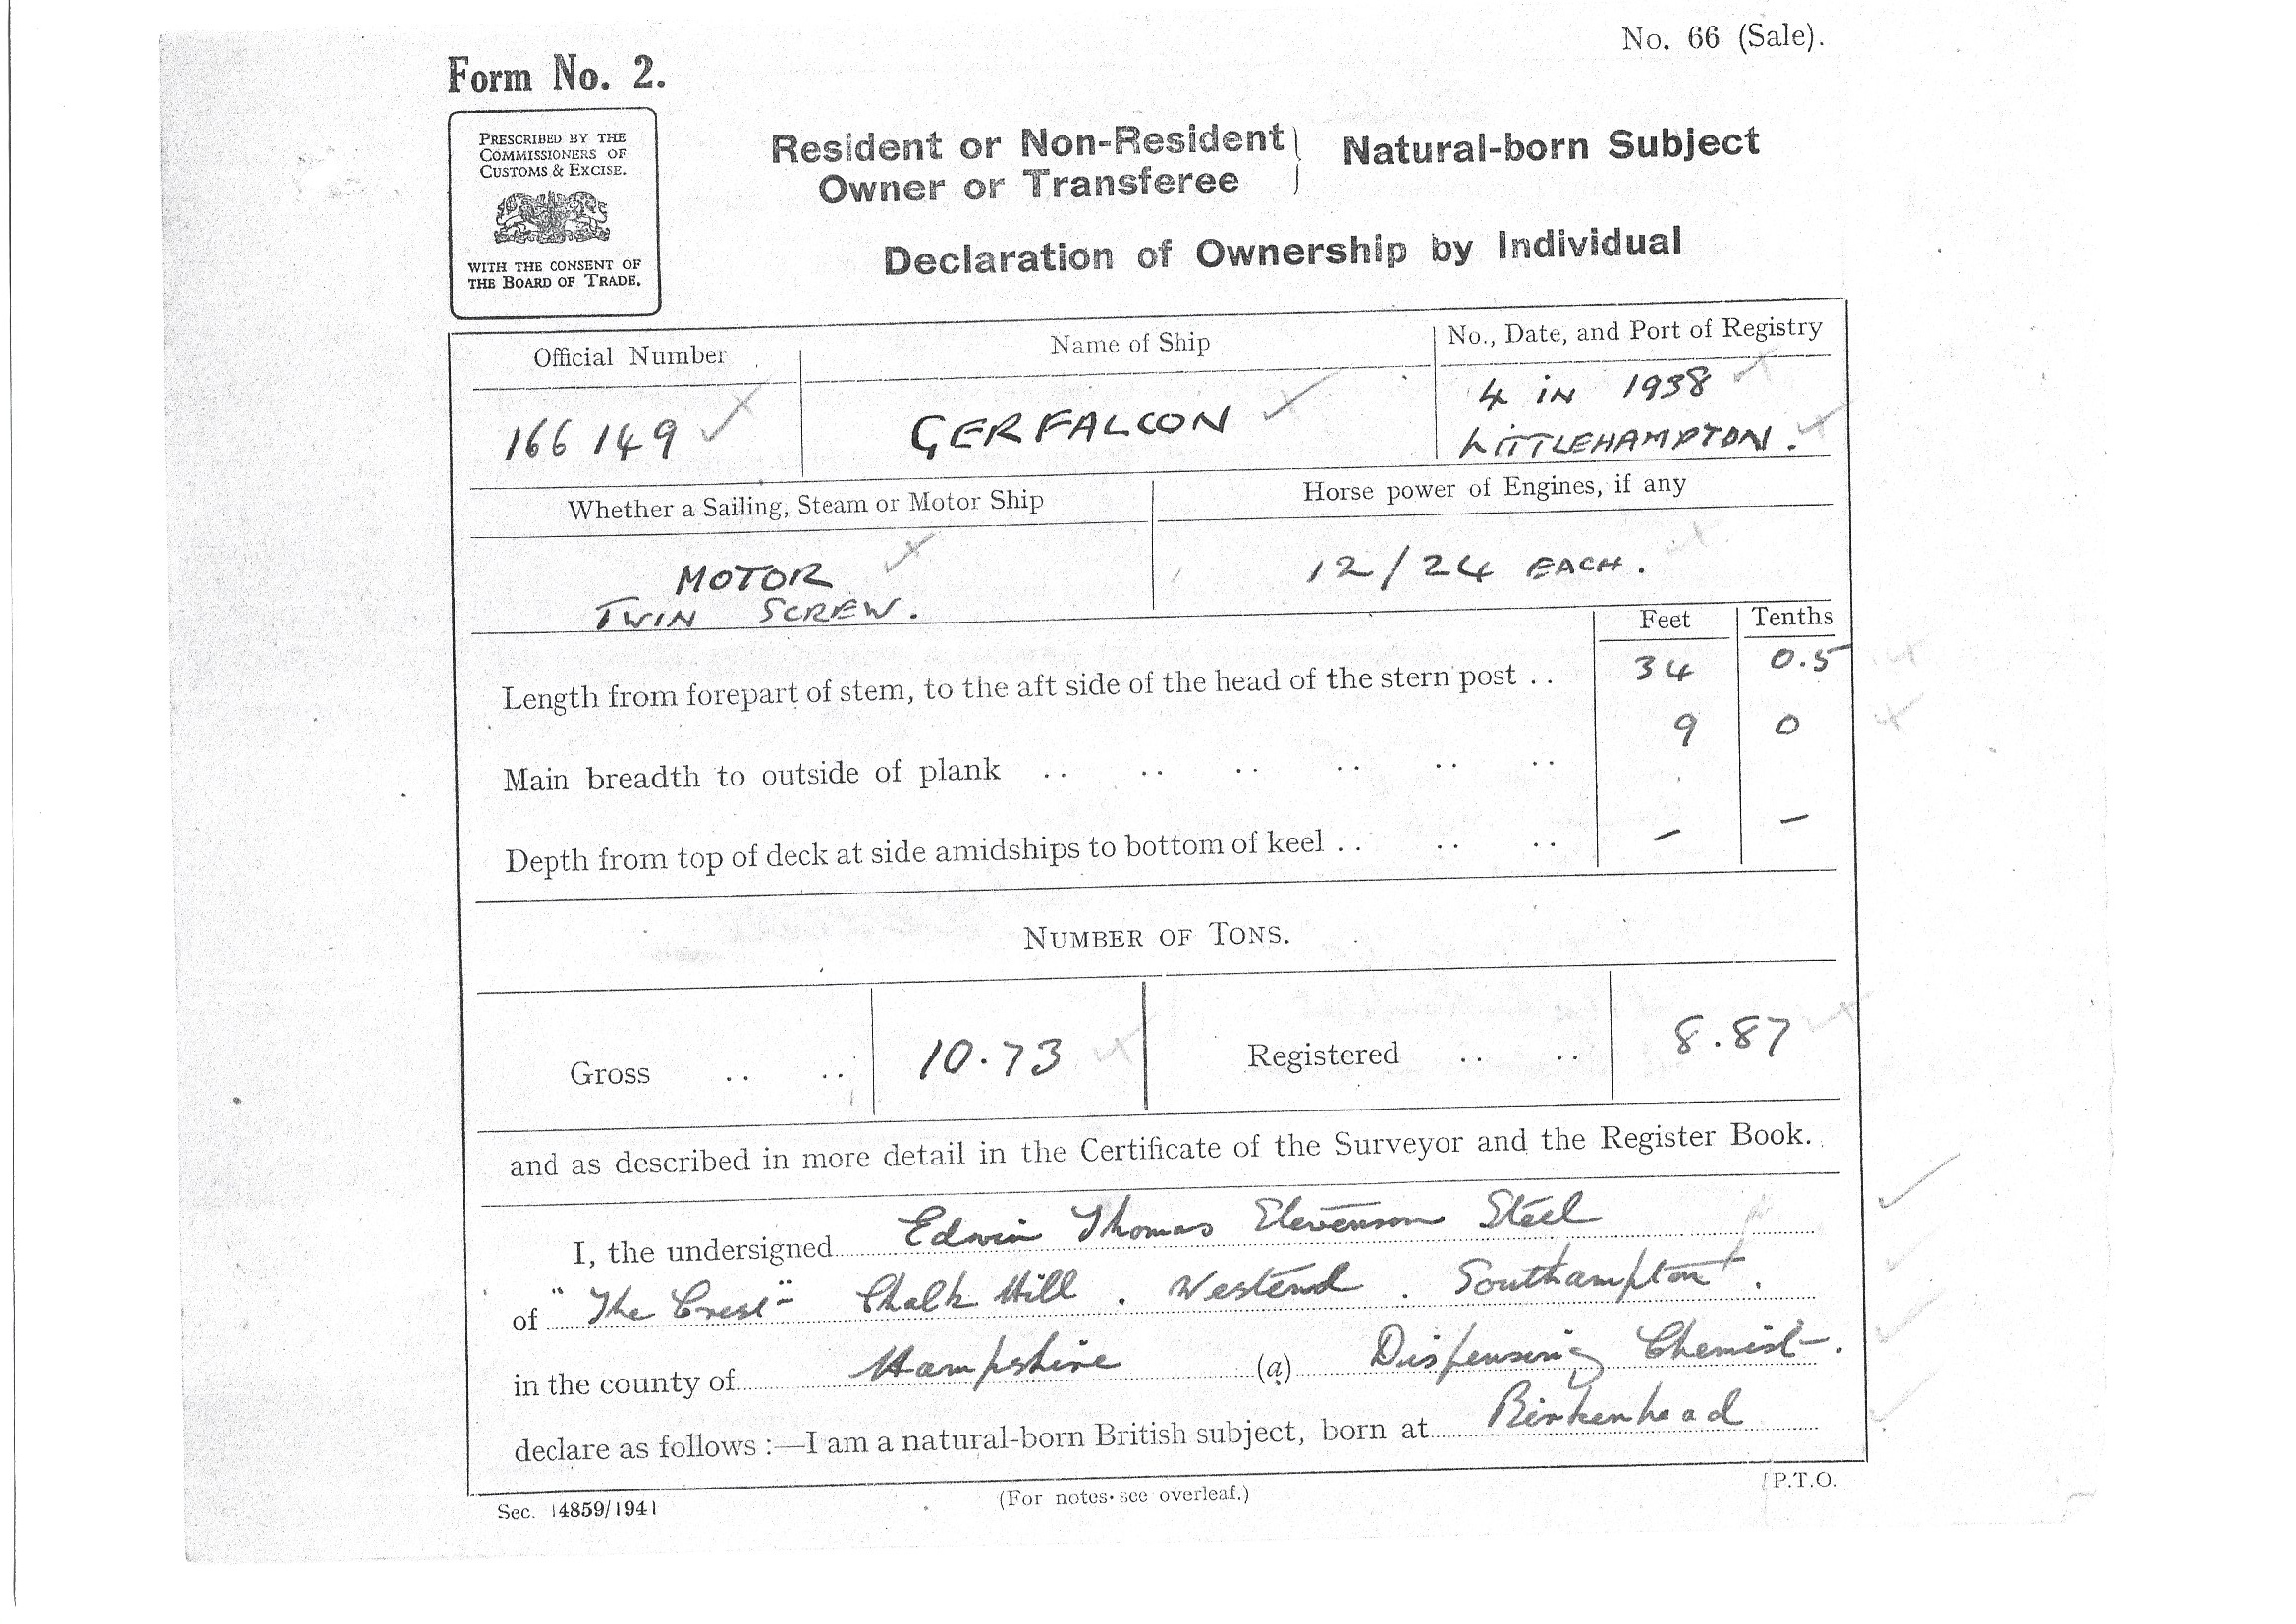 No. 66 (Sale).
Form No. 2.
PRESCRIBED BY THE
COMMISSIONERS OF
CUSTOMS & EXCISE.
WITH THE CONSENT OF
THE BOARD OF TRADE.
Resident or Non-Resident
Owner or Transferee
Natural-born Subject
Declaration of Ownership by Individual
Official Number
Name of Ship
No., Date, and Port of Registry
166 149
GERFALCON
4 IN 1938
LITTLEHAMPTON.
Whether a Sailing, Steam or Motor Ship
Horse power of Engines, if any
MOTOR
TWIN SCREW.
12/24 EACH.
Feet Tenths
Length from forepart of stem, to the aft side of the head of the stern post .. 34 0.5
Main breadth to outside of plank .. .. .. .. .. .. 9 0
Depth from top of deck at side amidships to bottom of keel .. .. .. – –
NUMBER OF TONS.
Gross .. .. 10.73 Registered .. .. 8.87
and as described in more detail in the Certificate of the Surveyor and the Register Book.
I, the undersigned Edwin Thomas Stevenson Steel
of "The Crest" Chalk Hill . Westend . Southampton .
in the county of Hampshire (a) Dispensing Chemist.
declare as follows :—I am a natural-born British subject, born at Birkenhead
Sec. 14859/1941
(For notes see overleaf.)
P.T.O.